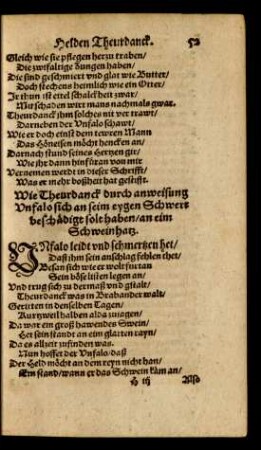 Helden Theurdanck. 52
Gleich wie sie pflegen herzu traben/
Die zwifaltige zungen haben/
Die sind geschmiert vnd glat wie Butter/
Doch stechens heimlich wie ein Otter/
Ir thun ist eitel schalckheit zwar/
Mit schaden wirt mans nachmals gwar.
Theurdanck jhm solches nit vertrawt/
Darneben der Vnfalo schawt/
Wie er doch einst dem tewren Mann
Das Höneisen möcht hencken an/
Darnach stund seines Hertzen gir/
Wie jhr dann hinfüran von mir
Vernemen werdt in dieser Schrifft/
Was er mehr boßheit hat gestifft.
Wie Theurdanck durch anweisung
Vnfalo sich an seim eygen Schwert
beschädigt solt haben/ an eim
Schweinhatz.
VNfalo leidt vnd schmertzen het/
Daß jhm sein anschlag fehlen thet/
Besan sich wie er wolt fürtan
Sein böse listen legen an/
Vnd trug sich zu dermaß vnd gstalt/
Theurdanck was in Brabander walt/
Geritten in denselben Tagen/
Kurtzweil halben alda zujagen/
Da war ein groß hawendes Swein/
Het sein standt an eim glatten rayn/
Da es allzeit zufinden was.
Nun hoffet der Vnfalo/ daß
Der Held möcht an dem reyn nicht han/
Ein stand/ wann er das Schwein käm an/
H iij Also